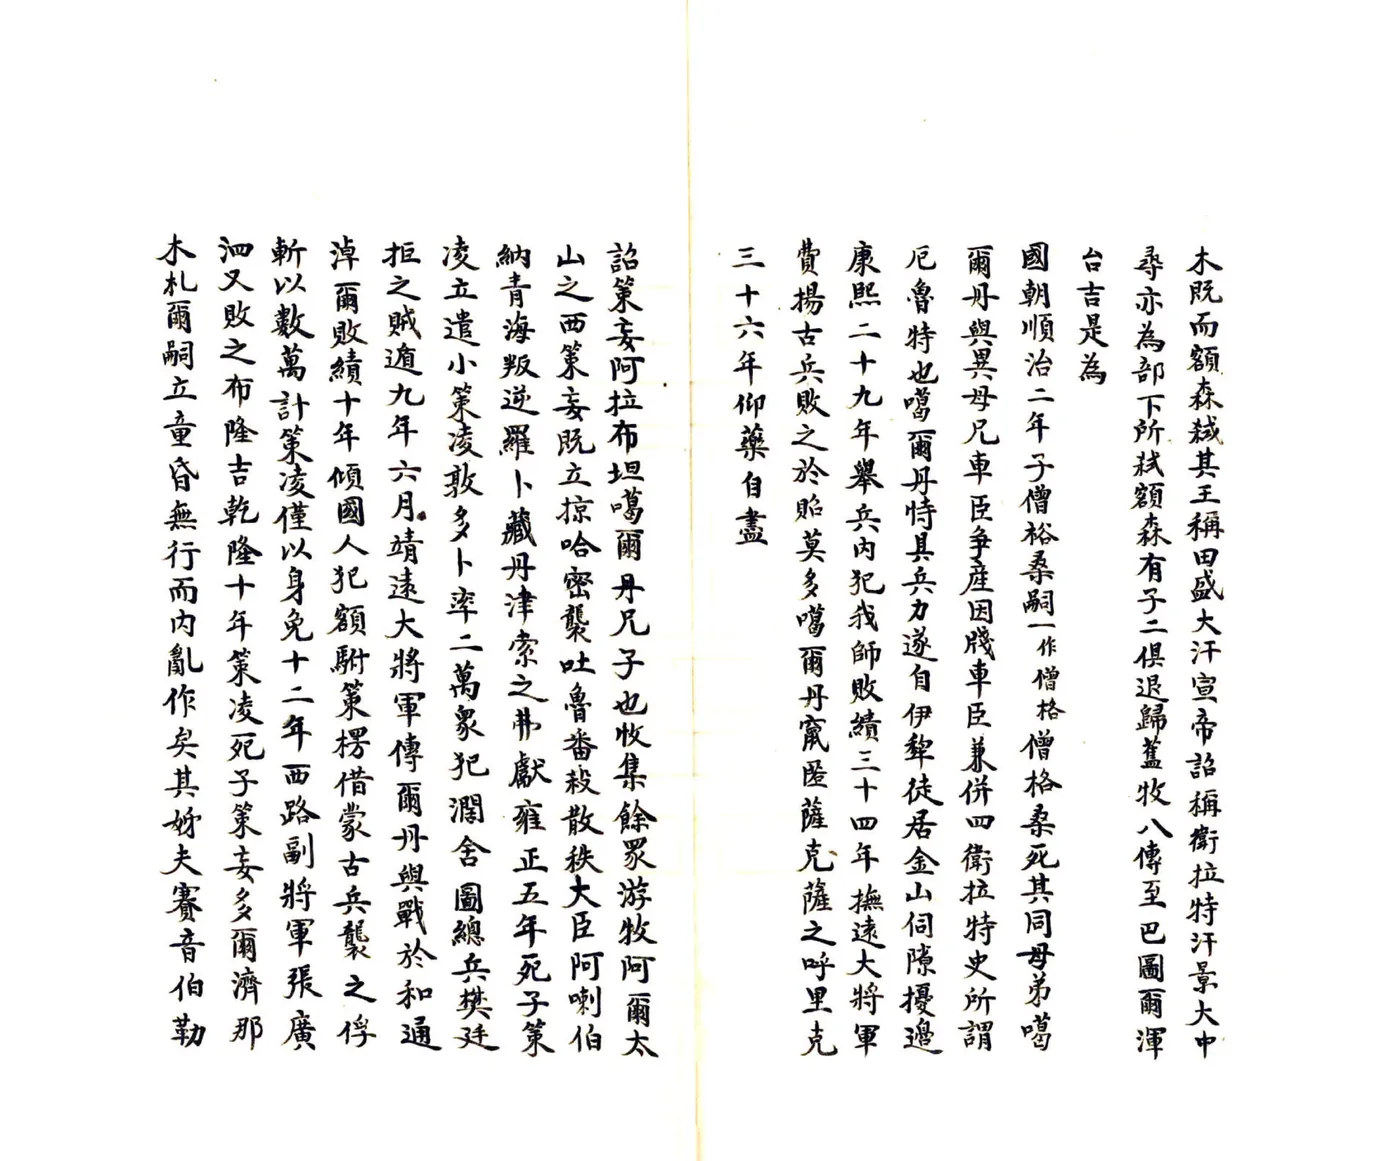 木既而額森弑其王稱田盛大汗宣帝詔稱衛拉特汗景大中
尋亦為部下所弑額森有子二俱退歸舊牧八傳至巴圖爾渾
台吉是為
國朝順治二年子僧格桑嗣一作僧格僧格桑死其同母弟噶
爾丹與異母兄車臣争産因戕車臣兼併四衛拉特史所謂
厄魯特也噶爾丹恃具兵力遂自伊犂徒居金山伺隙擾邊
康熙二十九年舉兵内犯我師敗績三十四年撫遠大將軍
費揚古兵敗之於昭莫多噶爾丹竄匿薩克薩之呼里克
三十六年仰藥自盡
詔策妄阿拉布坦噶爾丹兄子也收集餘眾游牧阿爾太
山之西策妄既立掠哈密襲吐魯番殺散秩大臣阿喇伯
納青海叛逆羅卜藏丹津索之弗獻雍正五年死子策
凌立遣小策凌敦多卜率二萬眾犯濶舍圖總兵樊廷
拒之賊遁九年六月靖遠大將軍傅爾丹與戰於和通
淖爾敗績十年傾國人犯額駙策楞借蒙古兵襲之俘
斬以數萬計策凌僅以身免十二年西路副將軍張廣
泗又敗之布隆吉乾隆十年策凌死子策妄多爾濟那
木札爾嗣立童昏無行而内亂作矣其姊夫賽音伯勒